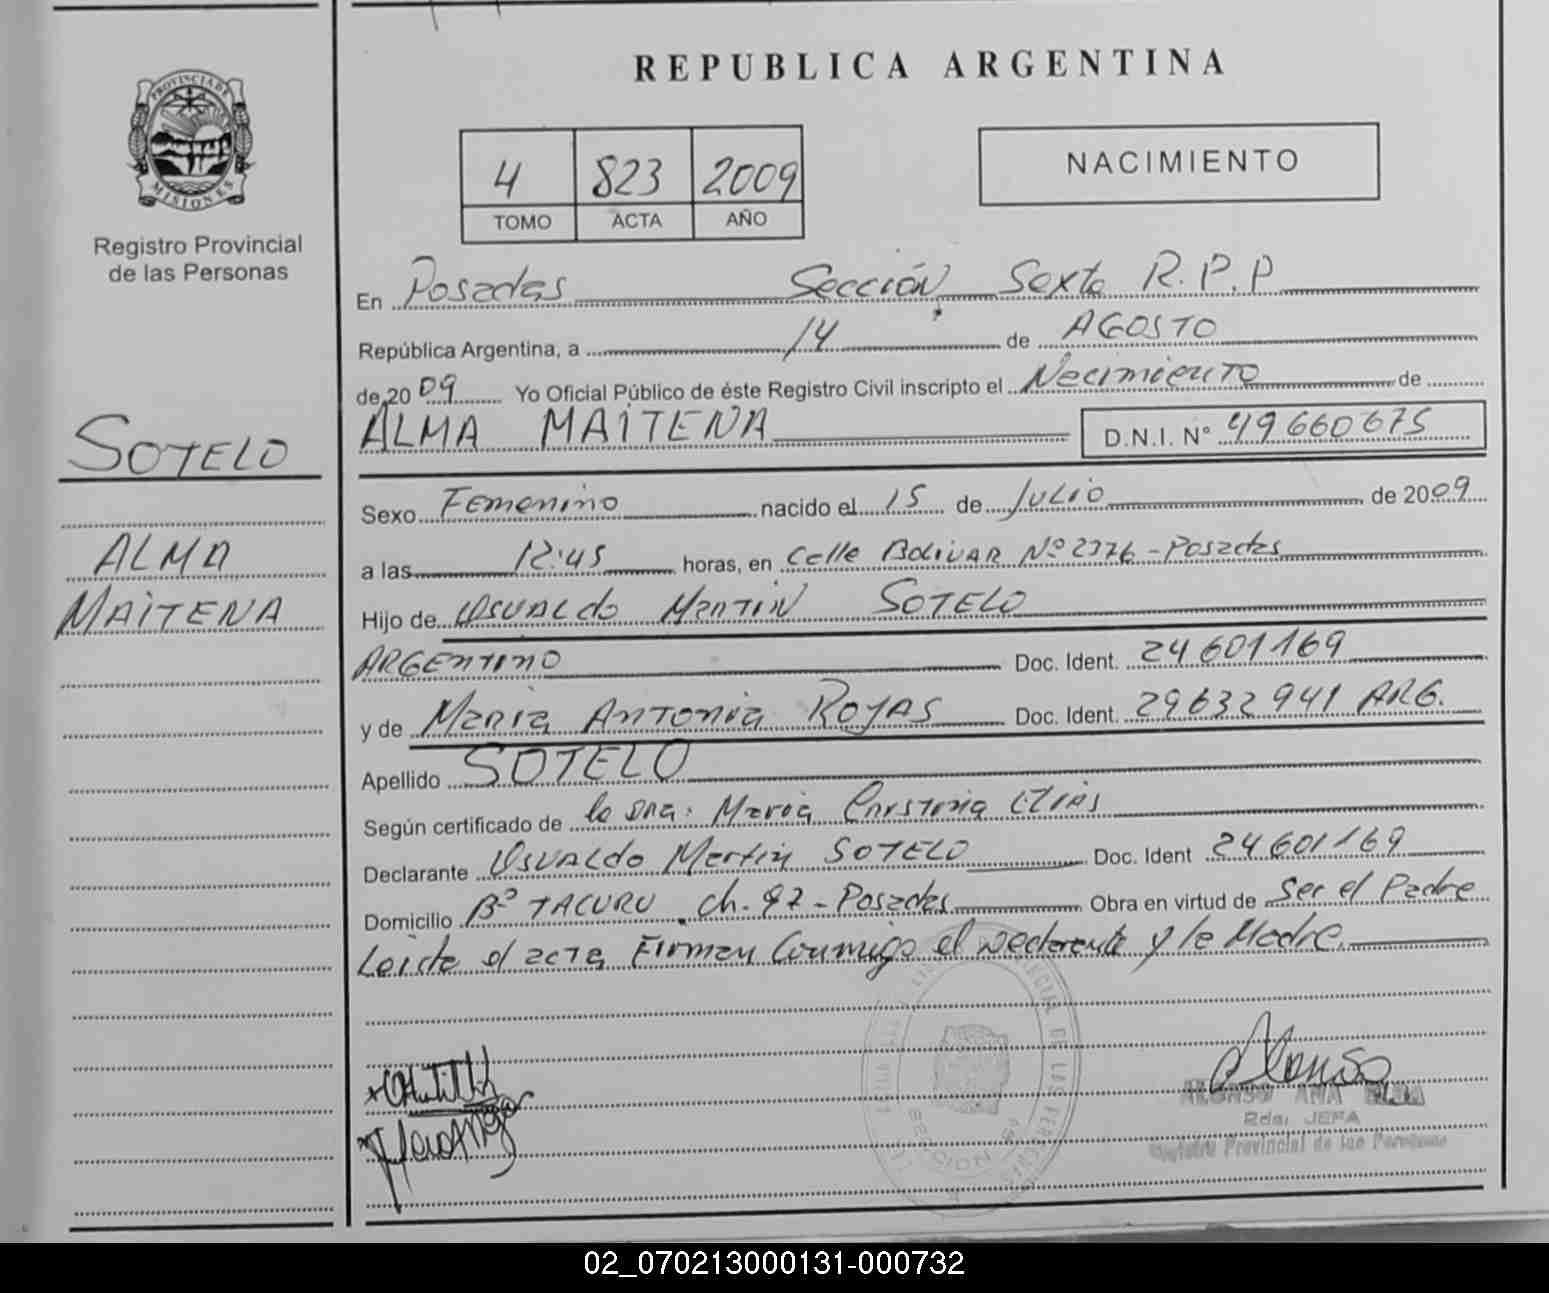 REPUBLICA ARGENTINA
PROVINCIA DE
MISIONES
Registro Provincial
de las Personas
4 823 2009
TOMO ACTA AÑO
NACIMIENTO
En Posadas Sección Sexta R.P.P
República Argentina, a 14 de AGOSTO
de 2009 Yo Oficial Público de éste Registro Civil inscripto el Nacimiento de
ALMA MAITENA D.N.I. Nº 49660675
SOTELO
ALMA
MAITENA
Sexo Femenino nacido el 15 de Julio de 2009
a las 12:45 horas, en Calle BOLIVAR Nº 2376 - Posadas
Hijo de OSVALDO Martin SOTELO
ARGENTINO Doc. Ident. 24601169
y de Maria Antonia ROJAS Doc. Ident. 29632941 ARG.
Apellido SOTELO
Según certificado de la DRA: Maria Cristina
Declarante OSVALDO Martin SOTELO Doc. Ident 24601169
Domicilio Bº TACURU ch. 97 - Posadas Obra en virtud de Ser el Padre
Leida el acta Firman Conmigo el declarante y la Madre
ALONSO ANA ELBA
JEFA
Registro Provincial de las Personas
02_070213000131-000732